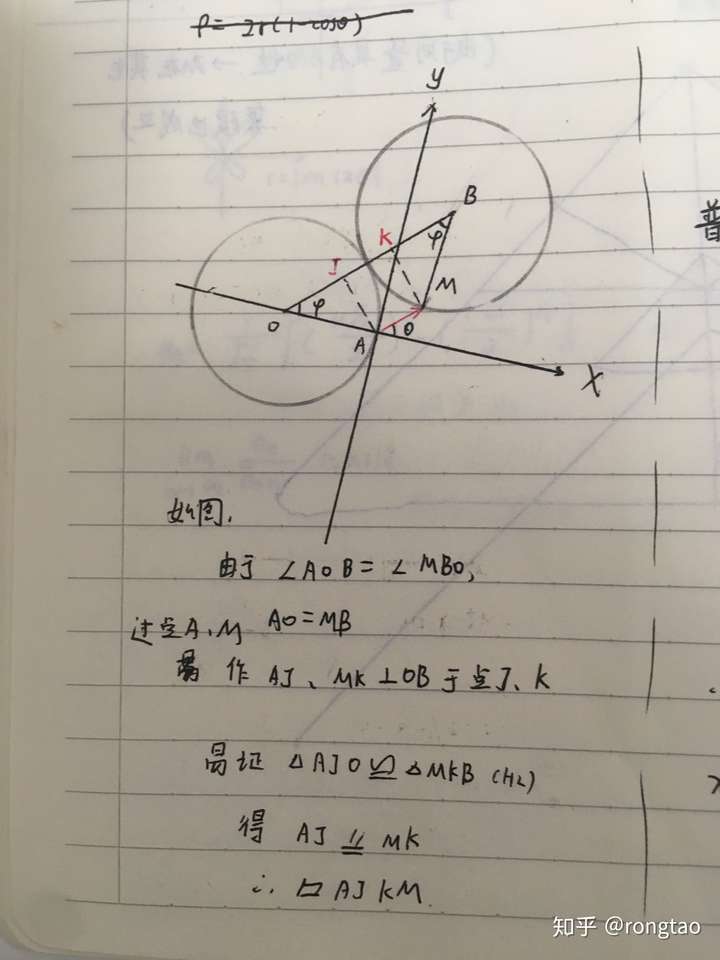 ρ = 2r(1-cosθ)
y
B
K
φ
J
M
O
φ
A
θ
X
如图.
由于 ∠AOB = ∠MBO,
AO = MB
过点A、M
作 AJ、MK⊥OB于点J、K
易证 △AJO≌△MKB (HL)
得 AJ ∥= MK
∴ ▱AJKM.
普
知乎 @rongtao